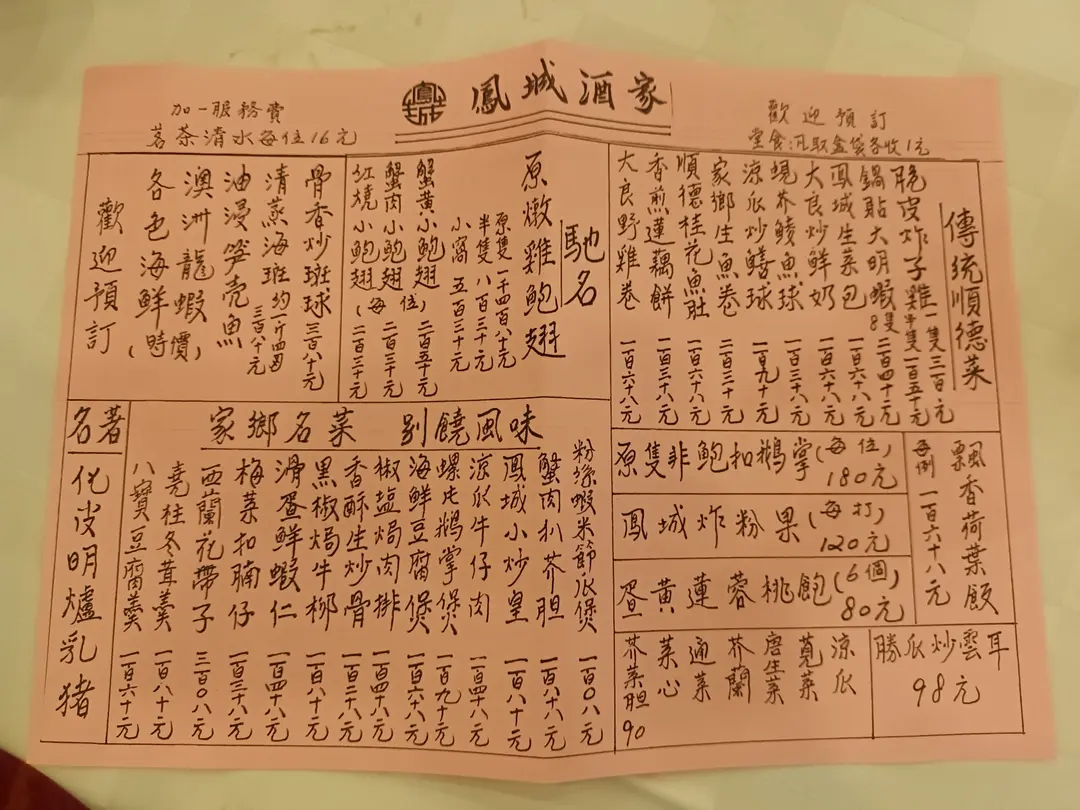 鳳城酒家
加一服務費
茗茶清水每位16元
歡迎預訂
堂食汛取盒袋各收1元
傳統順德菜
脆皮炸子雞 一隻三百元 半隻一百五十元
鍋貼大明蝦 8隻 二百四十元
鳳城生菜包 一百六十八元
大良炒鮮奶 一百六十八元
蜆芥鯪魚球 一百三十八元
涼瓜炒鱔球 一百九十元
家鄉生魚卷 二百三十元
順德桂花魚肚 一百六十八元
香煎蓮藕餅 一百三十八元
大良野雞卷 一百六十八元
馳名
原燉雞鮑翅
原隻 一千四百六十元
半隻 八百三十元
小窩 五百三十元
蟹黃小鮑翅 二百五十元
蟹肉小鮑翅 (每位) 二百三十元
紅燒小鮑翅 二百三十元
骨香炒斑球 三百八十元
清蒸海斑 約一斤四両 三百八十元
油浸笋壳魚
澳洲龍蝦
各色海鮮 (時價)
歡迎預訂
家鄉名菜 別饒風味
粉絲蝦米節瓜煲 一百〇八元
蟹肉扒芥胆 一百六十八元
鳳城小炒皇 一百八十元
涼瓜牛仔肉 一百四十八元
螺片鵝掌煲 一百九十元
海鮮豆腐煲 一百六十八元
椒鹽焗肉排 一百四十八元
香酥生炒骨 一百三十八元
黑椒焗牛柳 一百八十元
滑蛋鮮蝦仁 一百四十八元
梅菜扣腩仔 一百三十八元
西蘭花帶子 三百〇八元
堯柱冬茸羹 一百八十元
八寶豆腐羹 一百六十元
名著
化皮明爐乳豬
原隻非鮑扣鵝掌(每位) 180元
鳳城炸粉果(每打) 120元
蛋黃蓮蓉桃飽(6個) 80元
飄香荷葉飯
每例 一百六十八元
涼瓜
莧菜
唐生菜
芥蘭
通菜
菜心
芥菜胆 90
勝瓜炒雲耳
98元